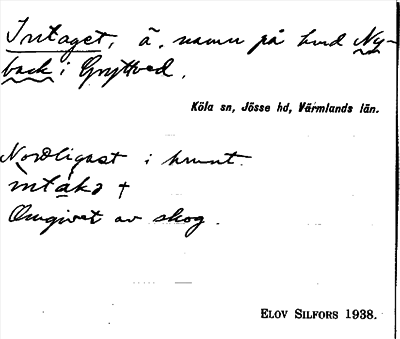 Intaget, ä. namn på hmd Ny-
back i Gryttved.
Köla sn, Jösse hd, Värmlands län.
Nordligast i hmnt.
ìntáka †
Omgivet av skog.
ELOV SILFORS 1938.